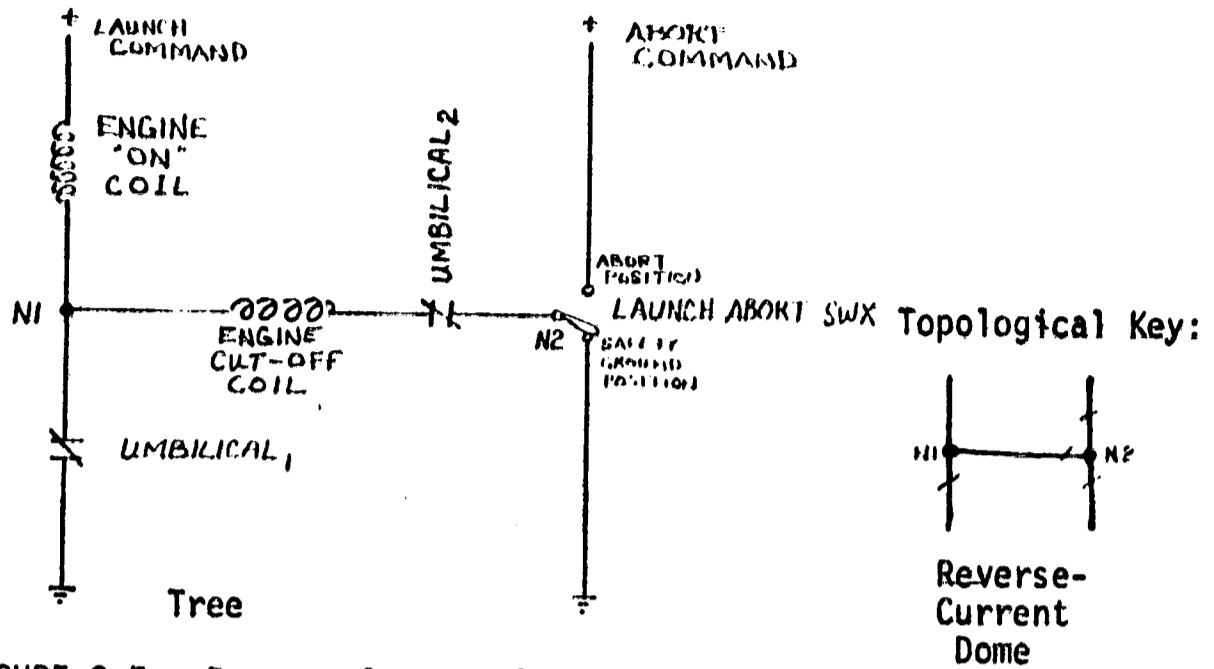 + LAUNCH
COMMAND
ENGINE
"ON"
COIL
N1
UMBILICAL₁
ENGINE
CUT-OFF
COIL
UMBILICAL₂
+ ABORT
COMMAND
ABORT
POSITION
LAUNCH ABORT SWX
N2
SAFETY
GROUND
POSITION
Tree
Topological Key:
N1
N2
Reverse-
Current
Dome